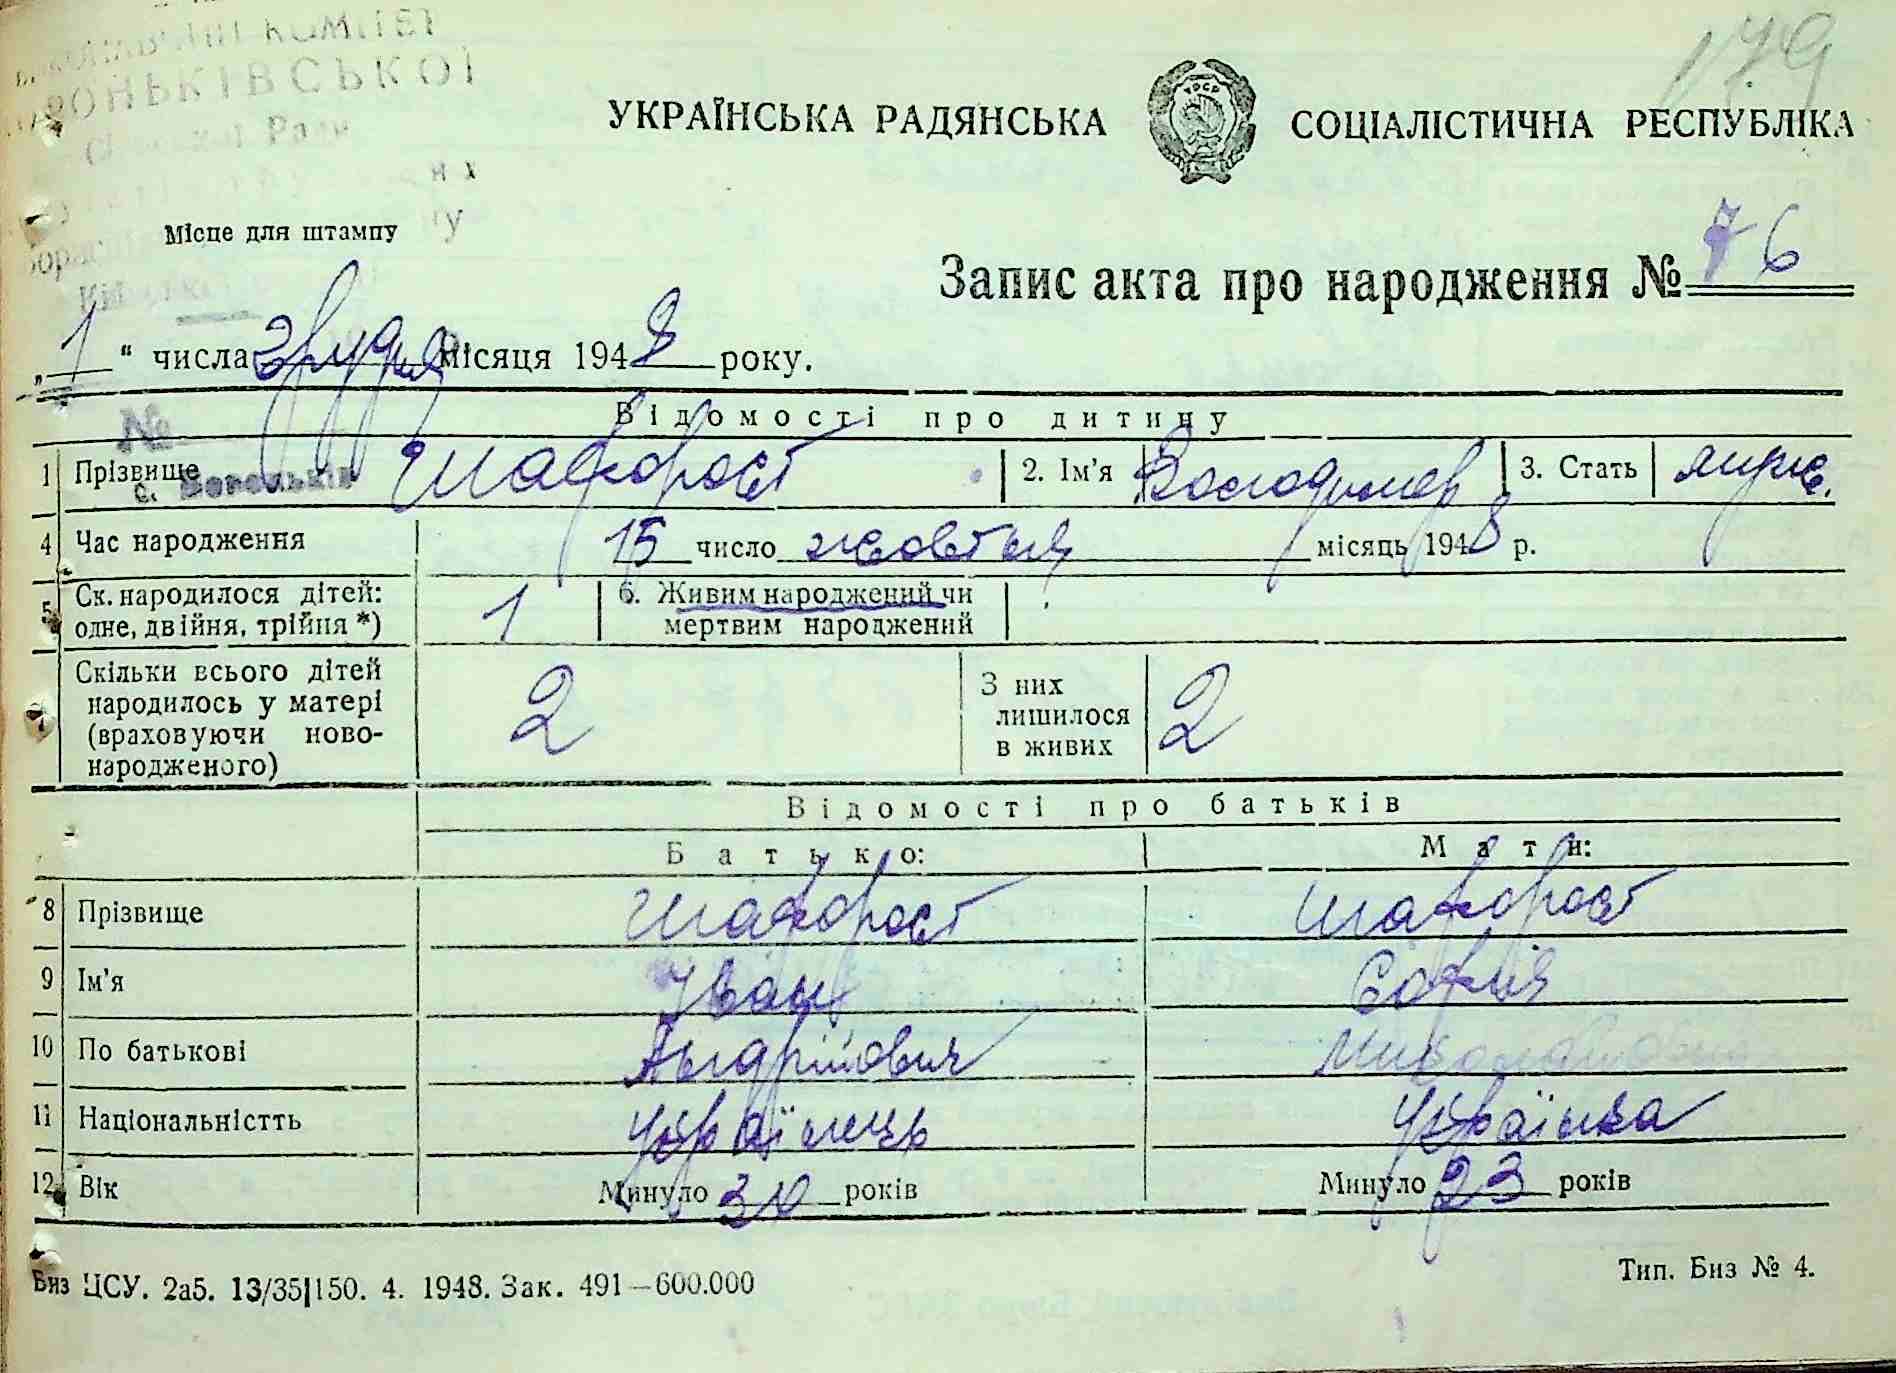 179
УКРАЇНСЬКА РАДЯНСЬКА СОЦІАЛІСТИЧНА РЕСПУБЛІКА
Місце для штампу
Запис акта про народження № 76
„1“ числа грудня місяця 1948 року.
Відомості про дитину
№
1 Прізвище Шафорост 2. Ім'я Володимер 3. Стать муже.
с. Вороньків
4 Час народження 15 число жовтня місяць 1948 р.
5 Ск. народилося дітей: 1 6. Живим народжений чи
одне, двійня, трійня *) мертвим народжений
7 Скільки всього дітей 2 З них 2
народилось у матері лишилося
(враховуючи ново- в живих
народженого)
Відомості про батьків
Батько: Мати:
8 Прізвище Шафорост Шафорост
9 Ім'я Іван Софія
10 По батькові Андрійович Миколаївна
11 Національністть Українець Українка
12 Вік Минуло 30 років Минуло 23 років
Биз ЦСУ. 2а5. 13/35|150. 4. 1948. Зак. 491—600.000
Тип. Биз № 4.